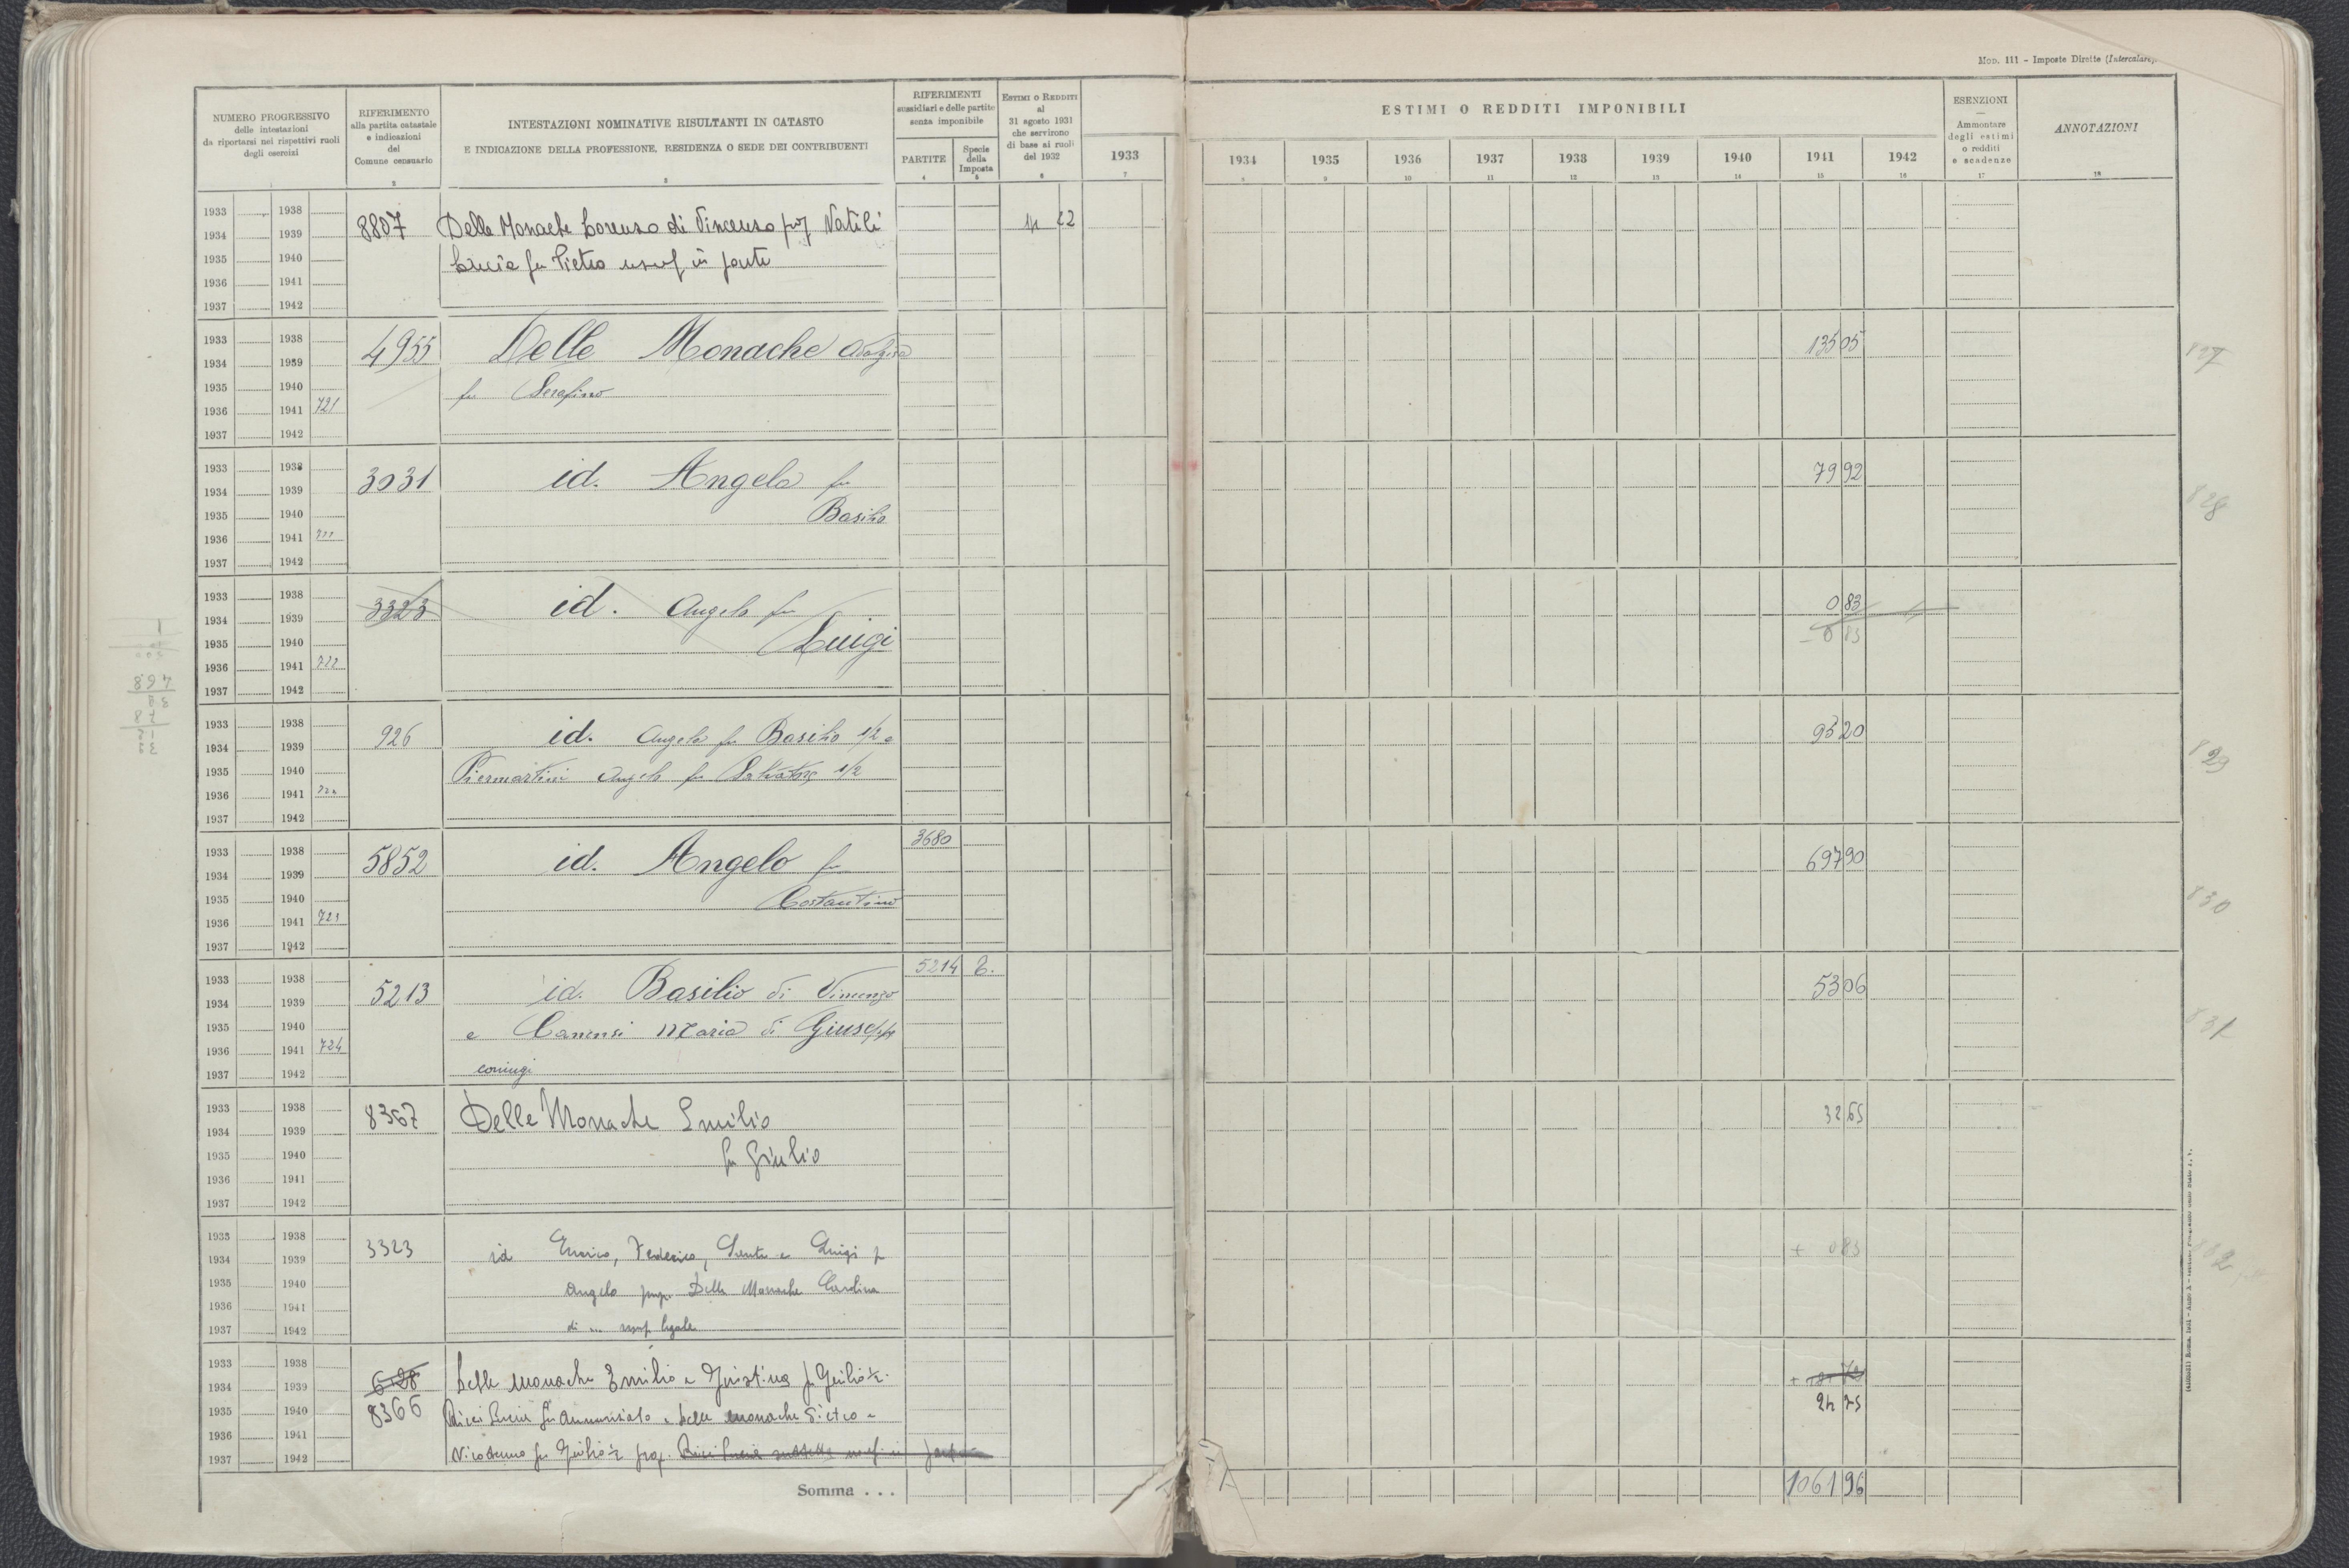 Mod. 111 - Imposte Dirette (Intercalare).
NUMERO PROGRESSIVO
delle intestazioni
da riportarsi nei rispettivi ruoli
degli esercizi
RIFERIMENTO
alla partita catastale
e indicazioni
del
Comune censuario
INTESTAZIONI NOMINATIVE RISULTANTI IN CATASTO
E INDICAZIONE DELLA PROFESSIONE, RESIDENZA O SEDE DEI CONTRIBUENTI
RIFERIMENTI
sussidiari e delle partite
senza imponibile
PARTITE
Specie
della
Imposta
ESTIMI O REDDITI
al
31 agosto 1931
che servirono
di base ai ruoli
del 1932
ESTIMI O REDDITI IMPONIBILI
1933 1934 1935 1936 1937 1938 1939 1940 1941 1942
ESENZIONI
—
Ammontare
degli estimi
o redditi
e scadenze
ANNOTAZIONI
2 3 4 5 6 7 8 9 10 11 12 13 14 15 16 17 18
1933 1938
1934 1939 8807 Delle Monache Lorenzo di Vincenzo prop Natili 14 22
1935 1940 Lucia fu Pietro usuf in parte
1936 1941
1937 1942
1933 1938
1934 1939 4955 Delle Monache Adalgisa 135 05
1935 1940 fu Serafino
1936 1941 721
1937 1942
827
1933 1938
1934 1939 3031 id. Angelo fu 79 92
1935 1940 Basilio
1936 1941
1937 1942
828
1933 1938
1934 1939 3323 id. Angelo fu 0 83
1935 1940 Luigi - 0 83
1936 1941 722
1937 1942
1933 1938
1934 1939 926 id. Angelo fu Basilio 1/2 e 95 20
1935 1940 Piermartini Angelo fu Salvatore 1/2
1936 1941
1937 1942
829
1933 1938 3680
1934 1939 5852 id. Angelo fu 697 90
1935 1940 Costantino
1936 1941 723
1937 1942
830
1933 1938 5214
1934 1939 5213 id. Basilio di Vincenzo 53 06
1935 1940 e Canensi Maria di Giuseppe
1936 1941 724
1937 1942 coniugi
831
1933 1938
1934 1939 8367 Delle Monache Emilio 32 65
1935 1940 fu Giulio
1936 1941
1937 1942
1933 1938
1934 1939 3323 id Enrico, Federico, Santa e Luigi fu + 0 83
1935 1940 Angelo prop. Delle Monache Carolina
1936 1941
1937 1942 di ... usuf legale
832
1933 1938
1934 1939 Delle Monache Emilio e Giustina fu Giulio 1/2
1935 1940 8366 Ricci Lucia fu Annunziato e Delle Monache Pietro e 24 75
1936 1941
1937 1942 Nicodemo fu Giulio 1/2 prop. Ricci Lucia
Somma . . . 1061 96